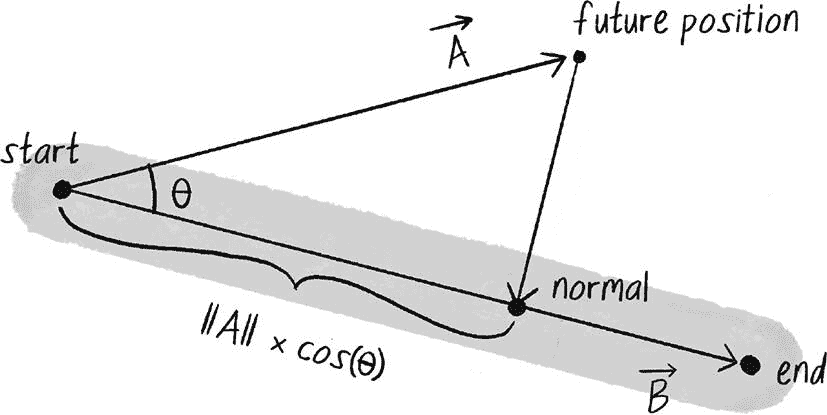 future position
A
start
θ
normal
||A|| × cos(θ)
B
end